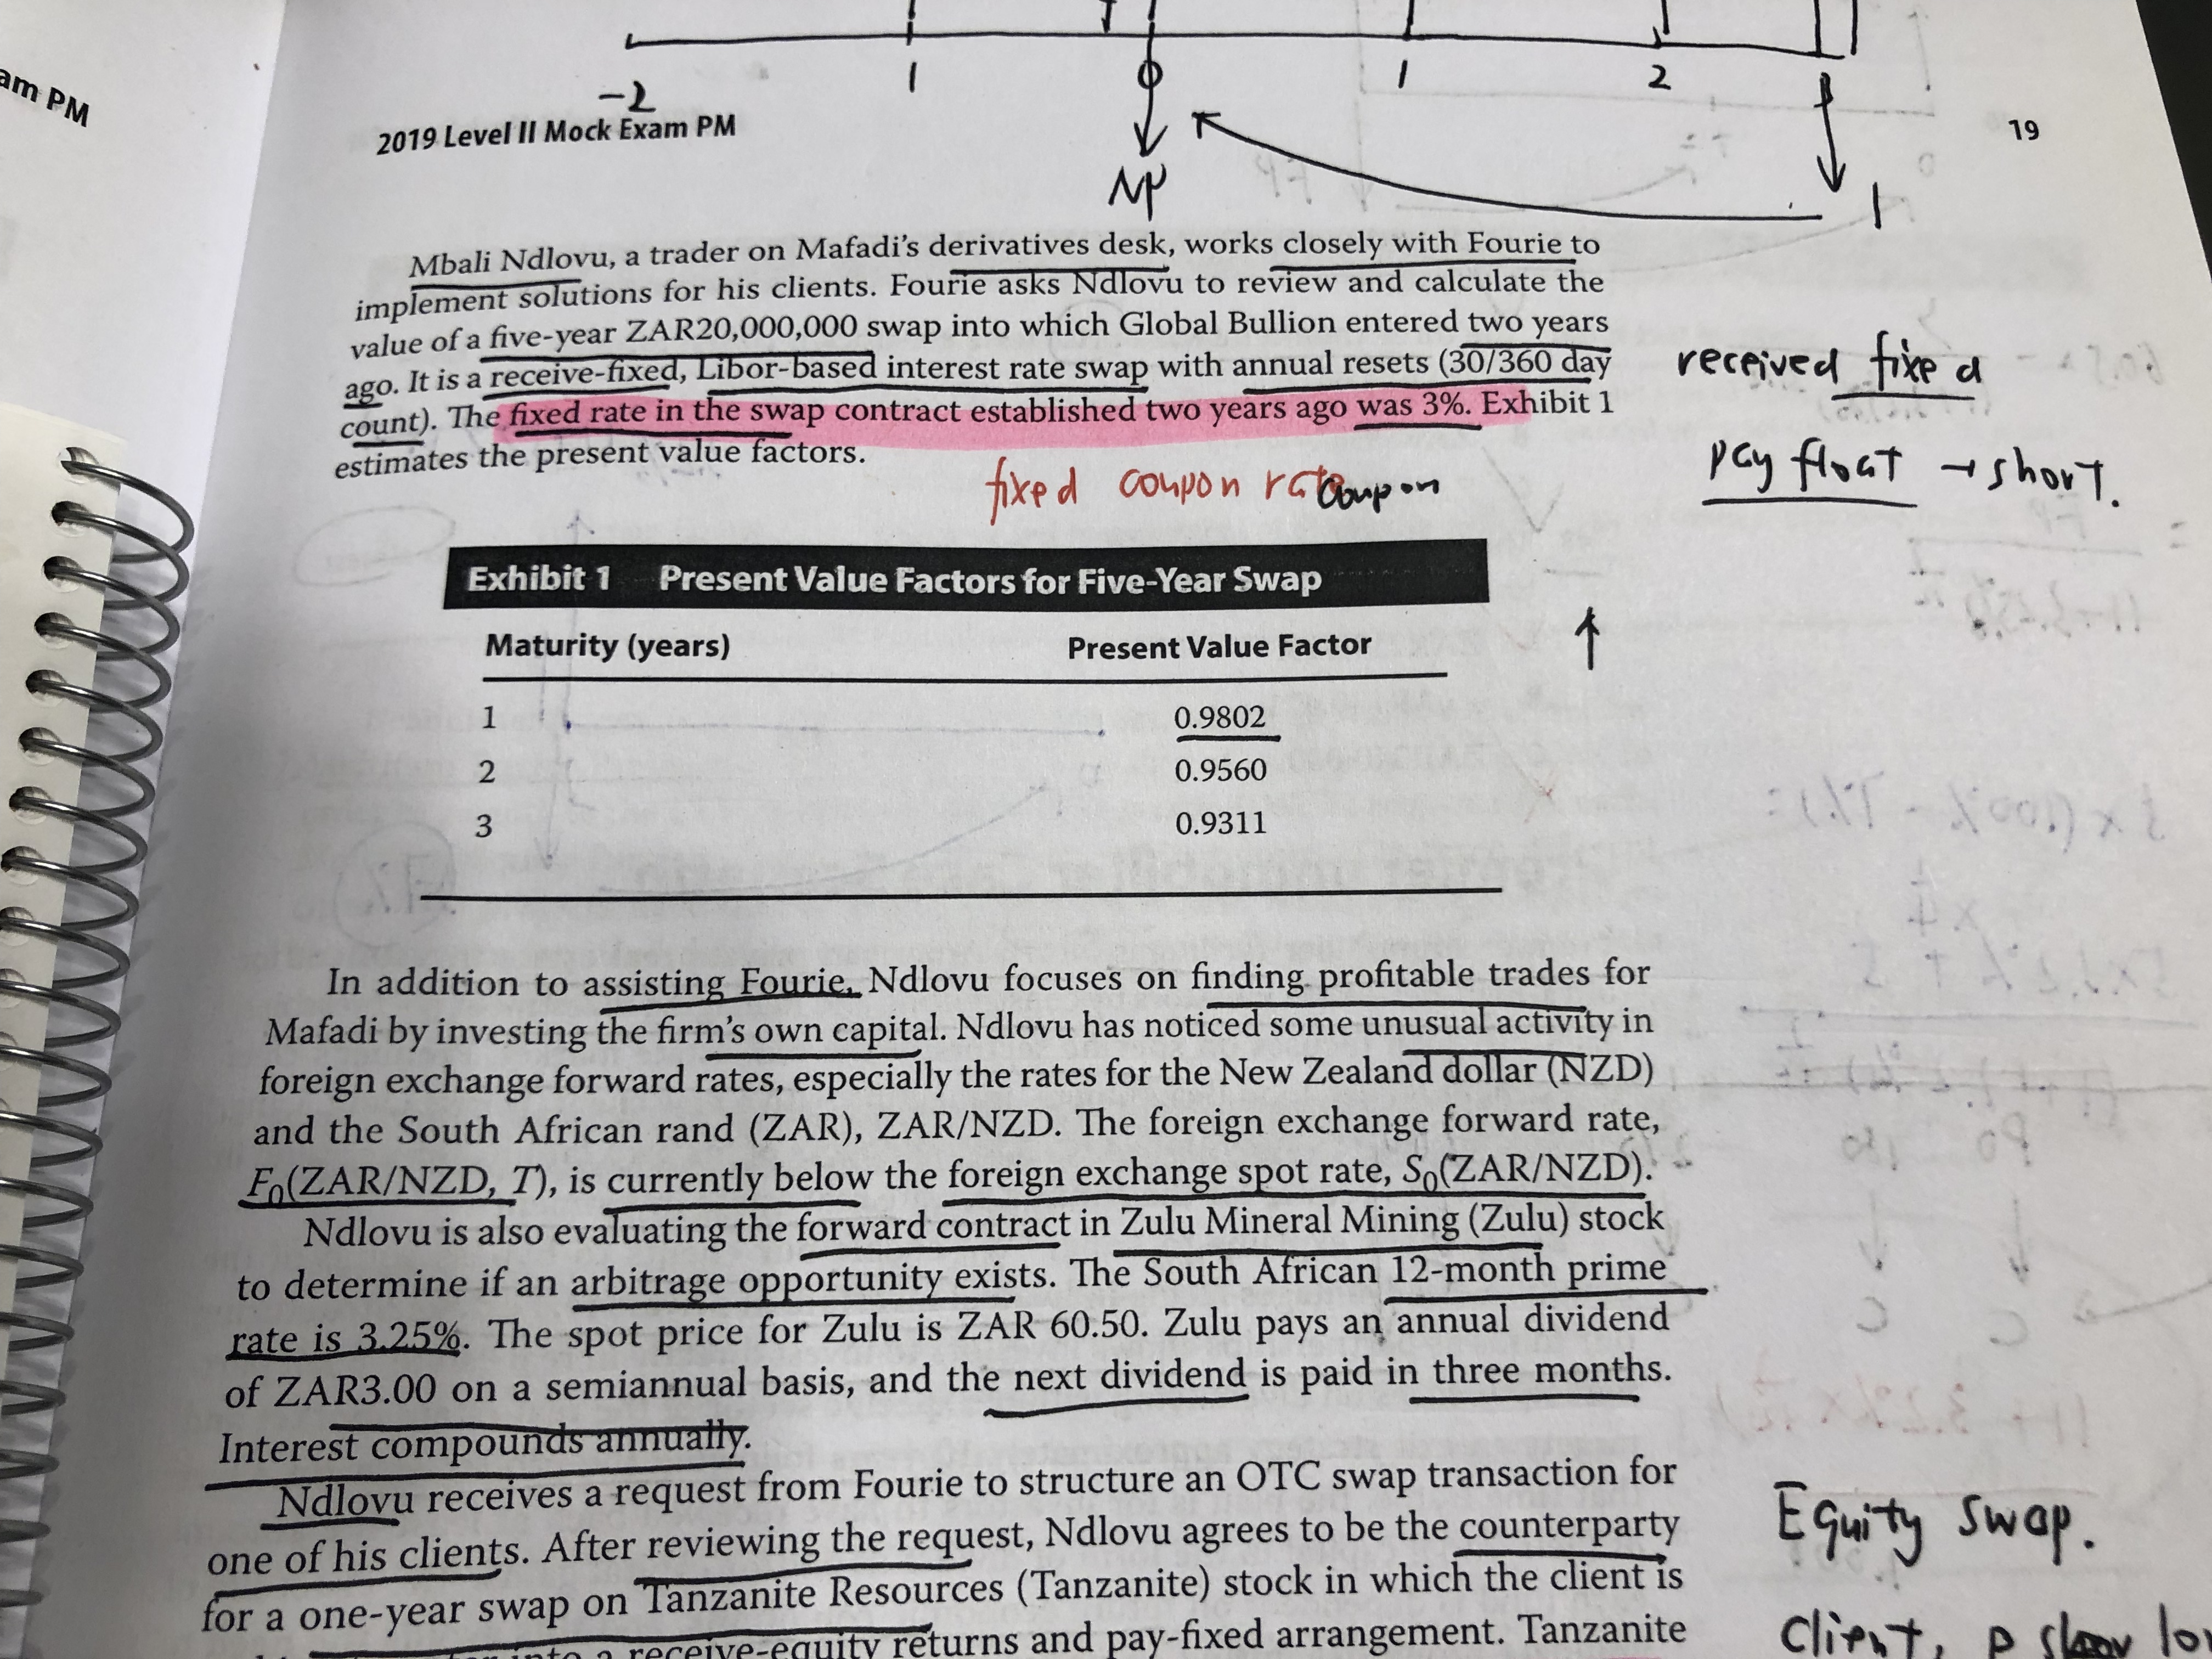 -2 1 0 1 2
am PM
2019 Level II Mock Exam PM
19
NP
1
Mbali Ndlovu, a trader on Mafadi's derivatives desk, works closely with Fourie to
implement solutions for his clients. Fourie asks Ndlovu to review and calculate the
value of a five-year ZAR20,000,000 swap into which Global Bullion entered two years
ago. It is a receive-fixed, Libor-based interest rate swap with annual resets (30/360 day
count). The fixed rate in the swap contract established two years ago was 3%. Exhibit 1
estimates the present value factors.
received fixed
pay float → short.
fixed coupon rate
coupon
Exhibit 1 Present Value Factors for Five-Year Swap
Maturity (years) Present Value Factor
1 0.9802
2 0.9560
3 0.9311
In addition to assisting Fourie, Ndlovu focuses on finding profitable trades for
Mafadi by investing the firm's own capital. Ndlovu has noticed some unusual activity in
foreign exchange forward rates, especially the rates for the New Zealand dollar (NZD)
and the South African rand (ZAR), ZAR/NZD. The foreign exchange forward rate,
F0(ZAR/NZD, T), is currently below the foreign exchange spot rate, S0(ZAR/NZD).
Ndlovu is also evaluating the forward contract in Zulu Mineral Mining (Zulu) stock
to determine if an arbitrage opportunity exists. The South African 12-month prime
rate is 3.25%. The spot price for Zulu is ZAR 60.50. Zulu pays an annual dividend
of ZAR3.00 on a semiannual basis, and the next dividend is paid in three months.
Interest compounds annually.
Ndlovu receives a request from Fourie to structure an OTC swap transaction for
one of his clients. After reviewing the request, Ndlovu agrees to be the counterparty
for a one-year swap on Tanzanite Resources (Tanzanite) stock in which the client is
a receive-equity returns and pay-fixed arrangement. Tanzanite
Equity swap.
Client,